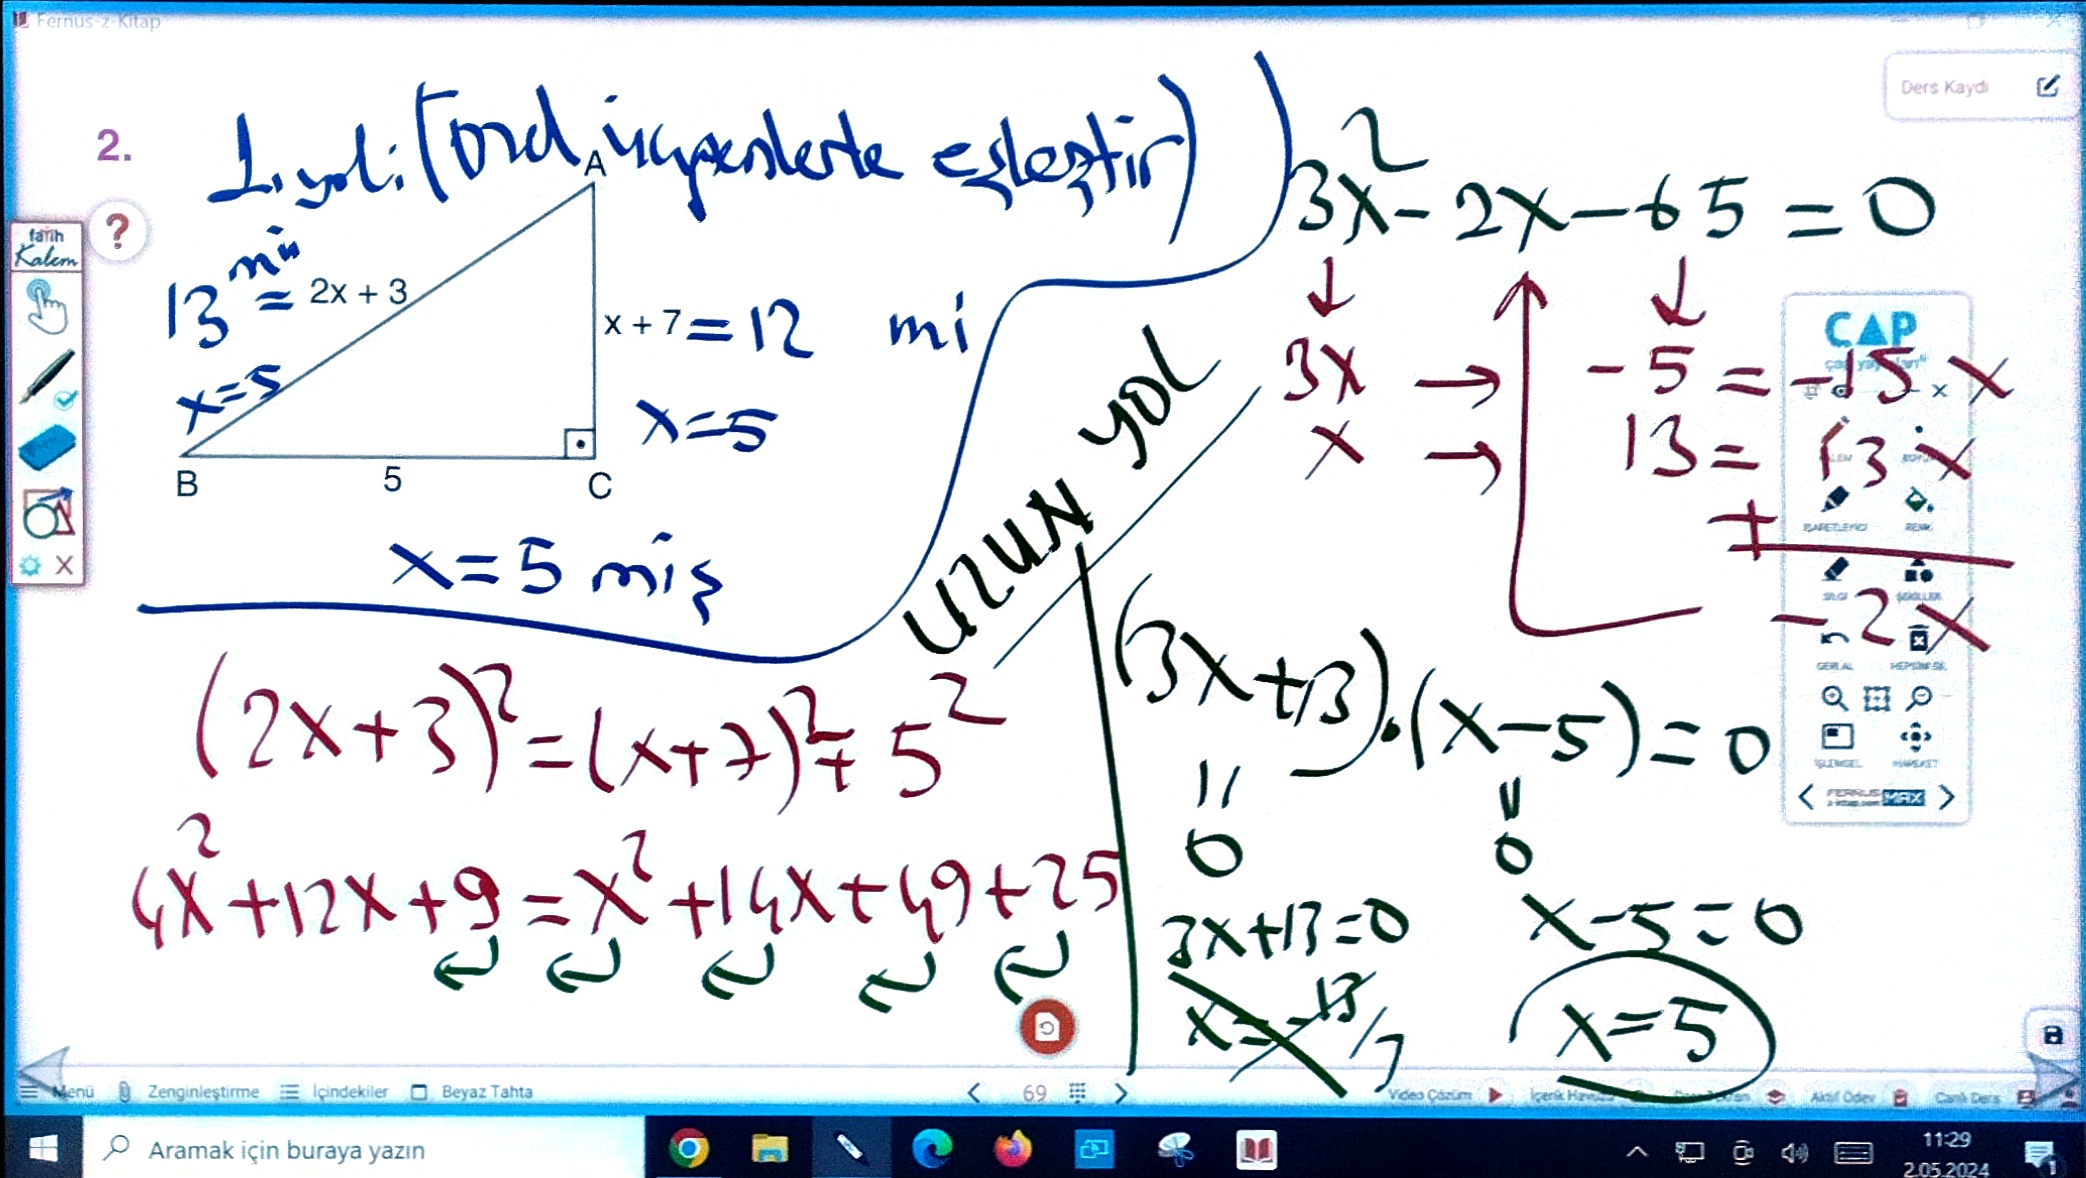 Fernus-z-Kitap
Ders Kaydı
2.
1. yol: (özel üçgenlerle eşleştir)
A
?
fatih
Kalem
13 = 2x + 3
mü
x=5
x + 7 = 12 mi
x=5
B
5
C
x=5 miş
UZUN YOL
(2x+3)² = (x+7)² + 5²
4x² +12x +9 = x² +14x +49 +25
3x² - 2x - 65 = 0
3x → -5 = -15x
x → 13 = 13x
+
-2x
(3x+13).(x-5) = 0
0
0
3x+13=0
x-5=0
x=-13/3
x=5
ÇAP
GERİ AL
FERNUS
MAX
Menü
Zenginleştirme
İçindekiler
Beyaz Tahta
69
Video Çözüm
Aktif Ödev
Canlı Ders
Aramak için buraya yazın
11:29
2.05.2024
1